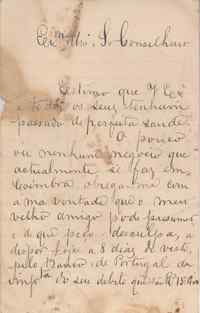 Exmo. Snr. Conselheiro
Estimo que V. Exa
e todos os seus tenham
passado de perfeita saude.
O pouco
ou nenhum negocio que
actualmente se faz em
Coimbra obriga-me com
a ma vontade que o meu
velho amigo pode presumir
e de que peço desculpa, a
dispôr hoje a 8 dias de vista,
pelo Banco de Portugal da
do seu debito